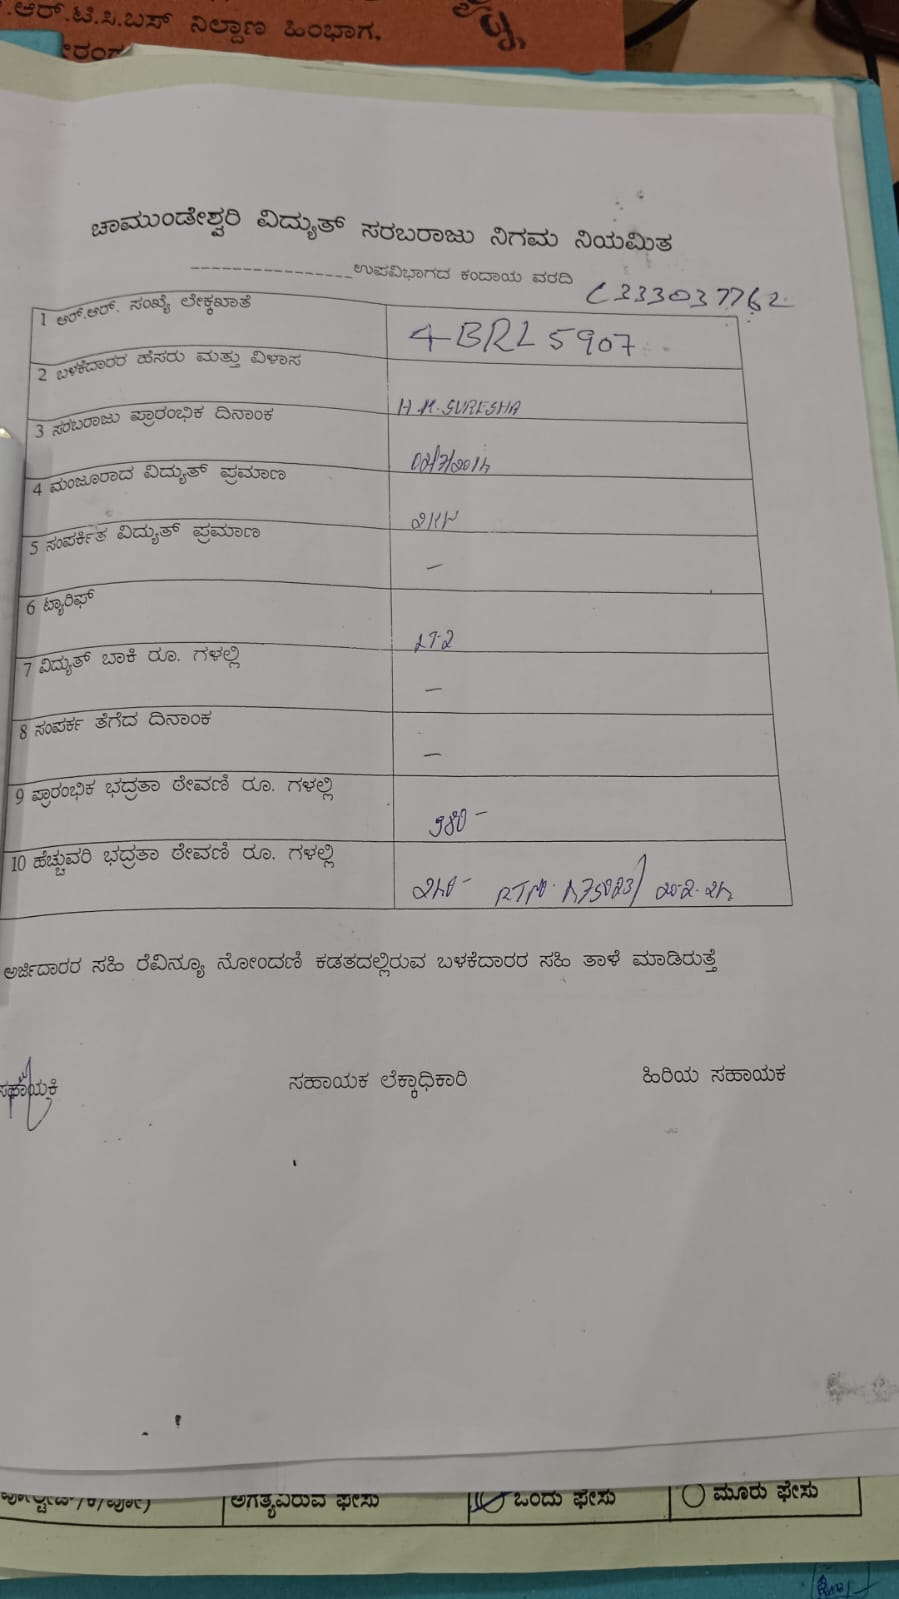 .ಆರ್.ಟಿ.ಸಿ.ಬಸ್ ನಿಲ್ದಾಣ ಹಿಂಭಾಗ,
ಚಾಮುಂಡೇಶ್ವರಿ ವಿದ್ಯುತ್ ಸರಬರಾಜು ನಿಗಮ ನಿಯಮಿತ
----------------ಉಪವಿಭಾಗದ ಕಂದಾಯ ವರದಿ
C333037762
1 ಆರ್.ಆರ್. ಸಂಖ್ಯೆ ಲೇಕ್ಕಖಾತೆ
4BRL5907
2 ಬಳಕೆದಾರರ ಹೆಸರು ಮತ್ತು ವಿಳಾಸ
H.M.SURESHA
3 ಸರಬರಾಜು ಪ್ರಾರಂಭಿಕ ದಿನಾಂಕ
4 ಮಂಜೂರಾದ ವಿದ್ಯುತ್ ಪ್ರಮಾಣ
2KW
5 ಸಂಪರ್ಕಿತ ವಿದ್ಯುತ್ ಪ್ರಮಾಣ
–
6 ಟ್ಯಾರಿಫ್
LT-2
7 ವಿದ್ಯುತ್ ಬಾಕಿ ರೂ. ಗಳಲ್ಲಿ
–
8 ಸಂಪರ್ಕ ತೆಗೆದ ದಿನಾಂಕ
–
9 ಪ್ರಾರಂಭಿಕ ಭದ್ರತಾ ಠೇವಣಿ ರೂ. ಗಳಲ್ಲಿ
980–
10 ಹೆಚ್ಚುವರಿ ಭದ್ರತಾ ಠೇವಣಿ ರೂ. ಗಳಲ್ಲಿ
ಅರ್ಜಿದಾರರ ಸಹಿ ರೆವಿನ್ಯೂ ನೋಂದಣಿ ಕಡತದಲ್ಲಿರುವ ಬಳಕೆದಾರರ ಸಹಿ ತಾಳೆ ಮಾಡಿರುತ್ತೆ
ಸಹಾಯಕಿ ಸಹಾಯಕ ಲೆಕ್ಕಾಧಿಕಾರಿ ಹಿರಿಯ ಸಹಾಯಕ
ಅಗತ್ಯವಿರುವ ಫೇಸು ಒಂದು ಫೇಸು ಮೂರು ಫೇಸು